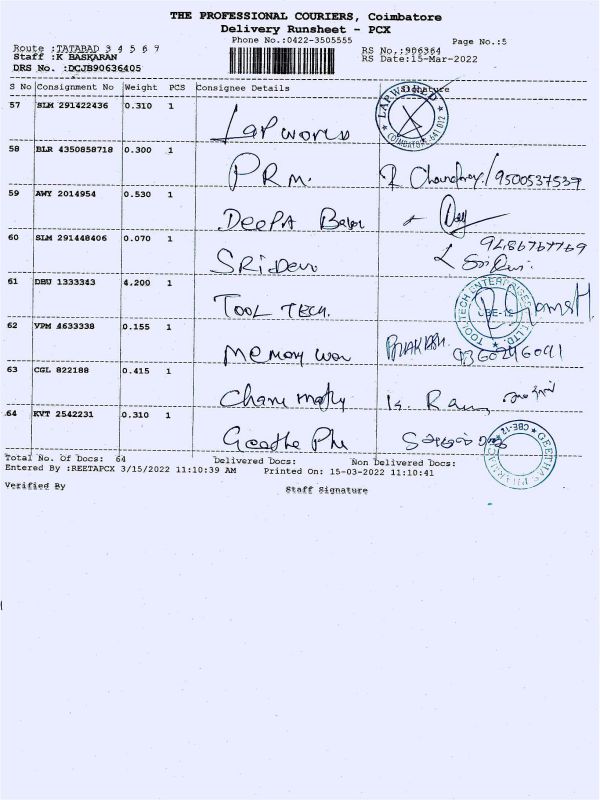 THE PROFESSIONAL COURIERS, Coimbatore
Delivery Runsheet - PCX
Phone No.:0422-3505555
Page No.:5
Route :TATABAD 3 4 5 6 9
Staff :K BASKARAN
DRS No. :DCJB90636405
RS No.:906364
RS Date:15-Mar-2022
S No Consignment No Weight PCS Consignee Details Signature
57 SLM 291422436 0.310 1 Lap world
LAP WORLD COIMBATORE-641 012
58 BLR 4350858718 0.300 1 PRM. 9500537539
59 AWY 2014954 0.530 1 DeePA Babu
60 SLM 291448406 0.070 1 SRiDevi 9486767769
61 DBU 1333343 4.200 1 TOOL TECH.
TOOL TECH ENTERPRISES CBE-12
62 VPM 4633338 0.155 1 Memory 9360296091
63 CGL 822188 0.415 1
64 KVT 2542231 0.310 1 Geetha
GEETHAS PHARMACY CBE-12
Total No. Of Docs: 64 Delivered Docs: Non Delivered Docs:
Entered By :REETAPCX 3/15/2022 11:10:39 AM Printed On: 15-03-2022 11:10:41
Verified By Staff Signature